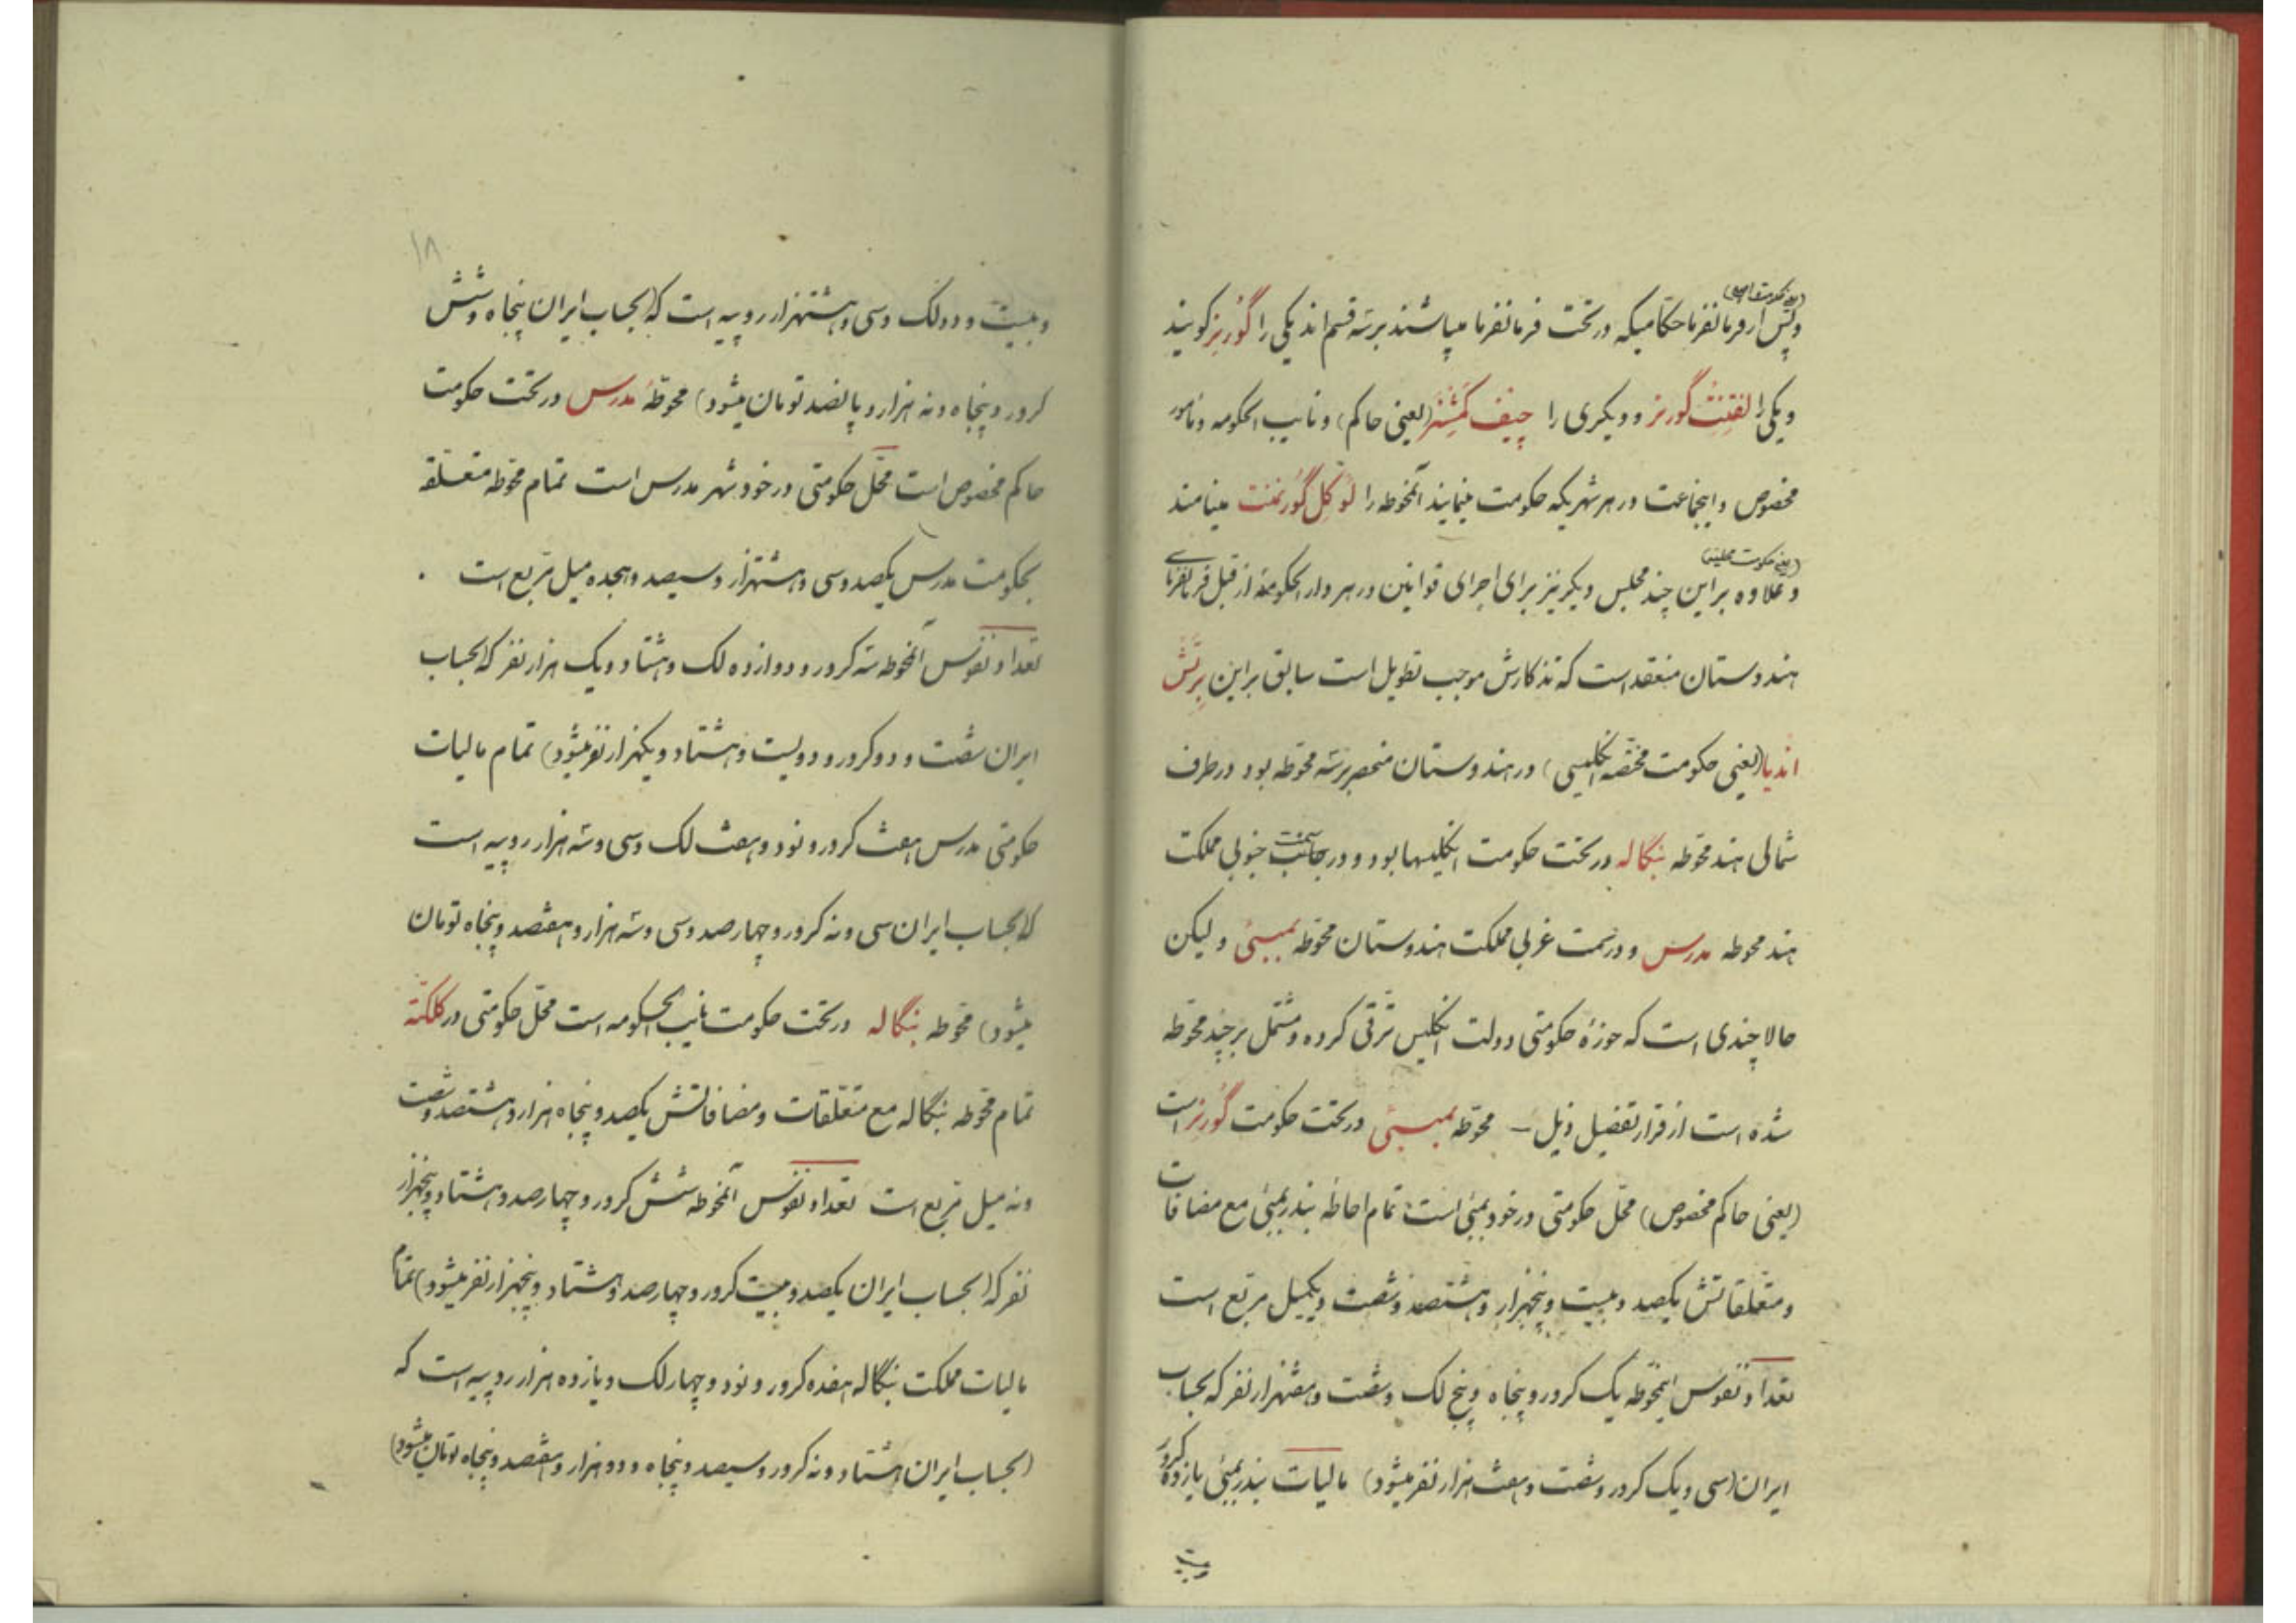 (یعنی حکومت محلیه)
و پس از فرمانفرما حکامیکه در تحت فرمانفرما میباشند بر سه قسم اند یکی را گورنر گویند
و یکی را لفتننت گورنر و دیگری را چیف کمشنر (یعنی حاکم) و نایب الحکومه و مامور
مخصوص و اینجماعت در هر شهریکه حکومت مینمایند آنمحوطه را لوکل گورنمنت مینامند
(یعنی حکومت محلیه)
و علاوه بر این چند مجلس دیگر نیز برای اجرای قوانین در هر دار الحکومة از قبل فرمانفرمای
هندوستان منعقد است که تذکارش موجب تطویل است سابق بر این برتش
اندیا (یعنی حکومت مختصه انگلیسی) در هندوستان منحصر بر سه محوطه بود در طرف
شمالی هند محوطه بنگاله در تحت حکومت انگلیسها بود و در سمت جنوبی مملکت
هند محوطه مدرس و در سمت غربی مملکت هندوستان محوطه بمبئی و لیکن
حالا چندی است که حوزهٔ حکومتی دولت انگلیس ترقی کرده و مشتمل بر چند محوطه
شده است از قرار تفصیل ذیل — محوطه بمبئی در تحت حکومت گورنر است
(یعنی حاکم مخصوص) محل حکومتی در خود بمبئی است تمام احاطه بندر بمبئی مع مضافات
و متعلقاتش یکصد و بیست و پنجهزار و هشتصد و شصت و یکمیل مربع است
تعداد نفوس اینمحوطه یک کرور و پنجاه و پنج لک و شصت و هفتهزار نفر که بحساب
ایران (سی و یک کرور و شصت و هفت هزار نفر میشود) مالیات بندر بمبئی یازده کرور
و بیست
۱۸
و بیست و دو لک و سی و هشتهزار روپیه است که (بحساب ایران پنجاه و شش
کرور و پنجاه و نه هزار و پانصد تومان میشود) محوطهٔ مدرس در تحت حکومت
حاکم مخصوص است محل حکومتی در خود شهر مدرس است تمام محوطه متعلقه
بحکومت مدرس یکصد و سی و هشتهزار و سیصد و هجده میل مربع است
تعداد نفوس آنمحوطه سه کرور و دوازده لک و هشتاد و یک هزار نفر که (بحساب
ایران شصت و دو کرور و دویست و هشتاد و یکهزار نفر میشود) تمام مالیات
حکومتی مدرس هفت کرور و نود و هفت لک و سی و سه هزار روپیه است
که (بحساب ایران سی و نه کرور و چهارصد و سی و سه هزار و هفتصد و پنجاه تومان
میشود) محوطه بنگاله در تحت حکومت نایب الحکومه است محل حکومتی در کلکته
تمام محوطه بنگاله مع متعلقات و مضافاتش یکصد و پنجاه هزار و هشتصد و شصت
و نه میل مربع است تعداد نفوس آنمحوطه شش کرور و چهارصد و هشتاد و پنجهزار
نفر که (بحساب ایران یکصد و بیست کرور و چهارصد و هشتاد و پنجهزار نفر میشود) تمام
مالیات مملکت بنگاله هفده کرور و نود و چهار لک و یازده هزار روپیه است که
(بحساب ایران هشتاد و نه کرور و سیصد و پنجاه و دو هزار و هفتصد و پنجاه تومان میشود)